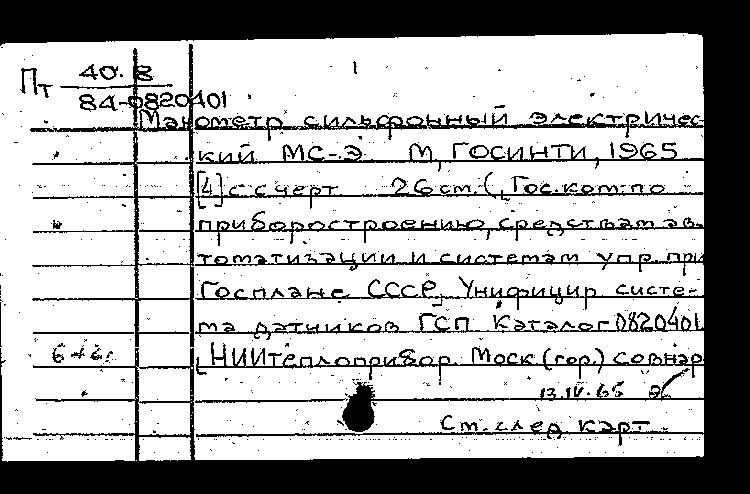 Пт 40.8
84-0820401
1
Манометр сильфонный электричес-
кий МС-Э М, ГОСИНТИ, 1965
[4] с с черт 26 см. (, Гос. ком. по
приборостроению, средствам ав-
томатизации и системам упр. при
Госплане СССР, Унифицир систе-
ма датчиков ГСП Каталог 0820401
НИИтеплоприбор. Моск. (гор.) совнар
13.IV.65
См. след карт